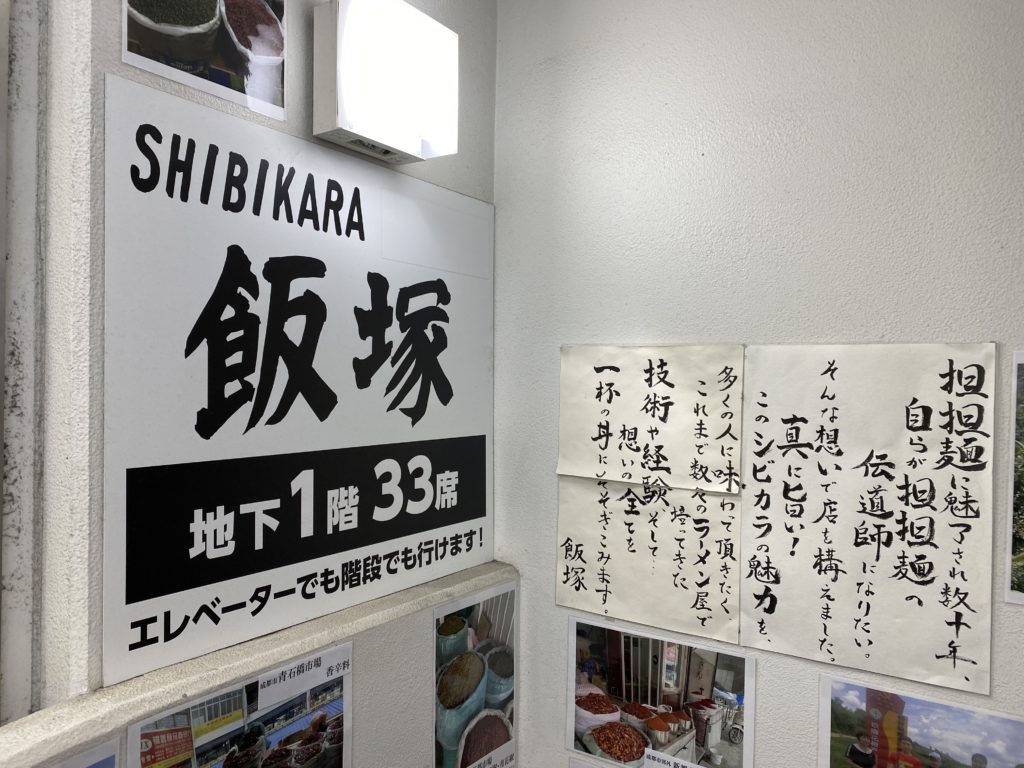 SHIBIKARA
飯塚
地下1階 33席
エレベーターでも階段でも行けます!
担担麺に魅了され数十年、
自らが担担麺の
伝道師になりたい。
そんな想いで店を構えました。
真に旨い!
このシビカラの魅力を、
多くの人に味わって頂きたく
これまで数々のラーメン屋で
培ってきた
技術や経験そして…
想いの全てを
一杯の丼にそそぎこみます。
飯塚
成都市 青石橋市場 香辛料